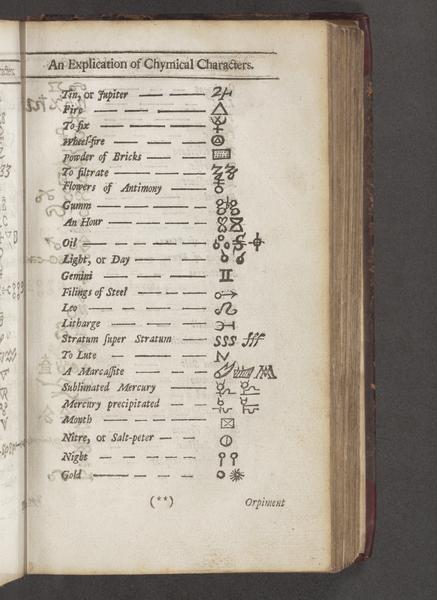 An Explication of Chymical Characters.
Tin, or Jupiter
Fire
To fix
Wheel-fire
Powder of Bricks
To filtrate
Flowers of Antimony
Gumm
An Hour
Oil
Light, or Day
Gemini
Filings of Steel
Leo
Litharge
Stratum super Stratum — SSS ſſſ
To Lute
A Marcassite
Sublimated Mercury
Mercury precipitated
Month
Nitre, or Salt-peter
Night
Gold
(**) Orpiment